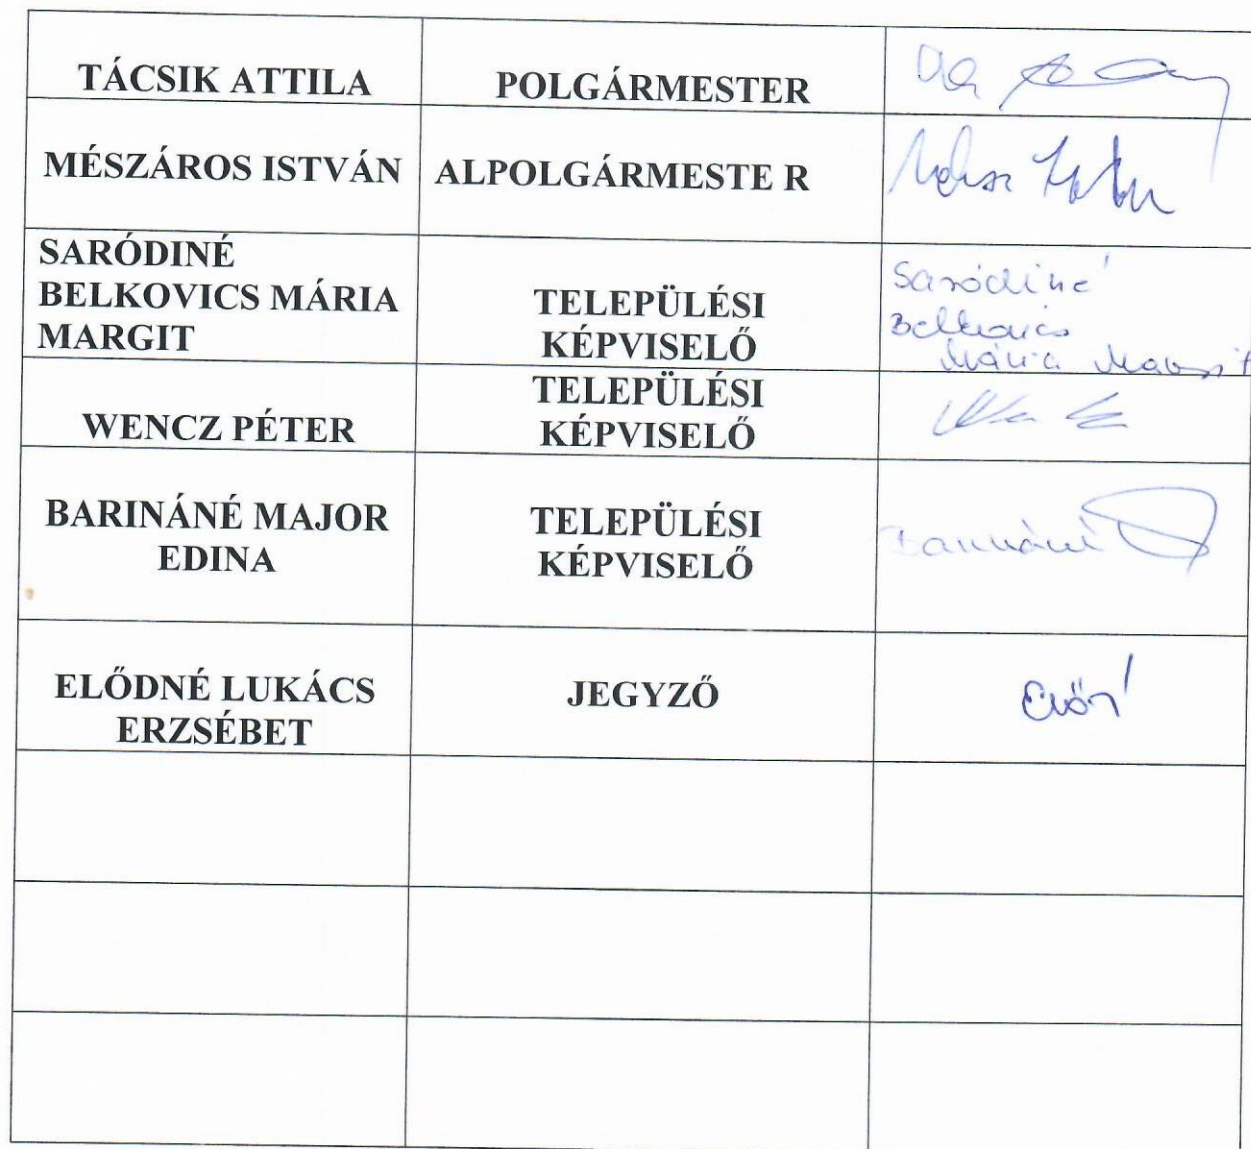 TÁCSIK ATTILA
POLGÁRMESTER
MÉSZÁROS ISTVÁN
ALPOLGÁRMESTE R
SARÓDINÉ
BELKOVICS MÁRIA
MARGIT
TELEPÜLÉSI
KÉPVISELŐ
Saródiné
Belkovics
Mária Margit
WENCZ PÉTER
TELEPÜLÉSI
KÉPVISELŐ
BARINÁNÉ MAJOR
EDINA
TELEPÜLÉSI
KÉPVISELŐ
Barináné
ELŐDNÉ LUKÁCS
ERZSÉBET
JEGYZŐ